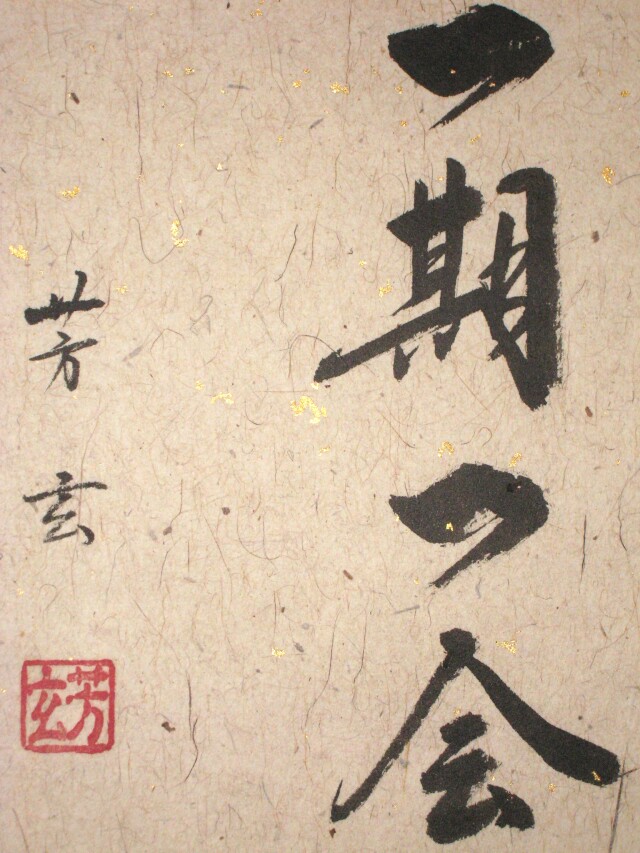 一期一会
芳玄
芳玄